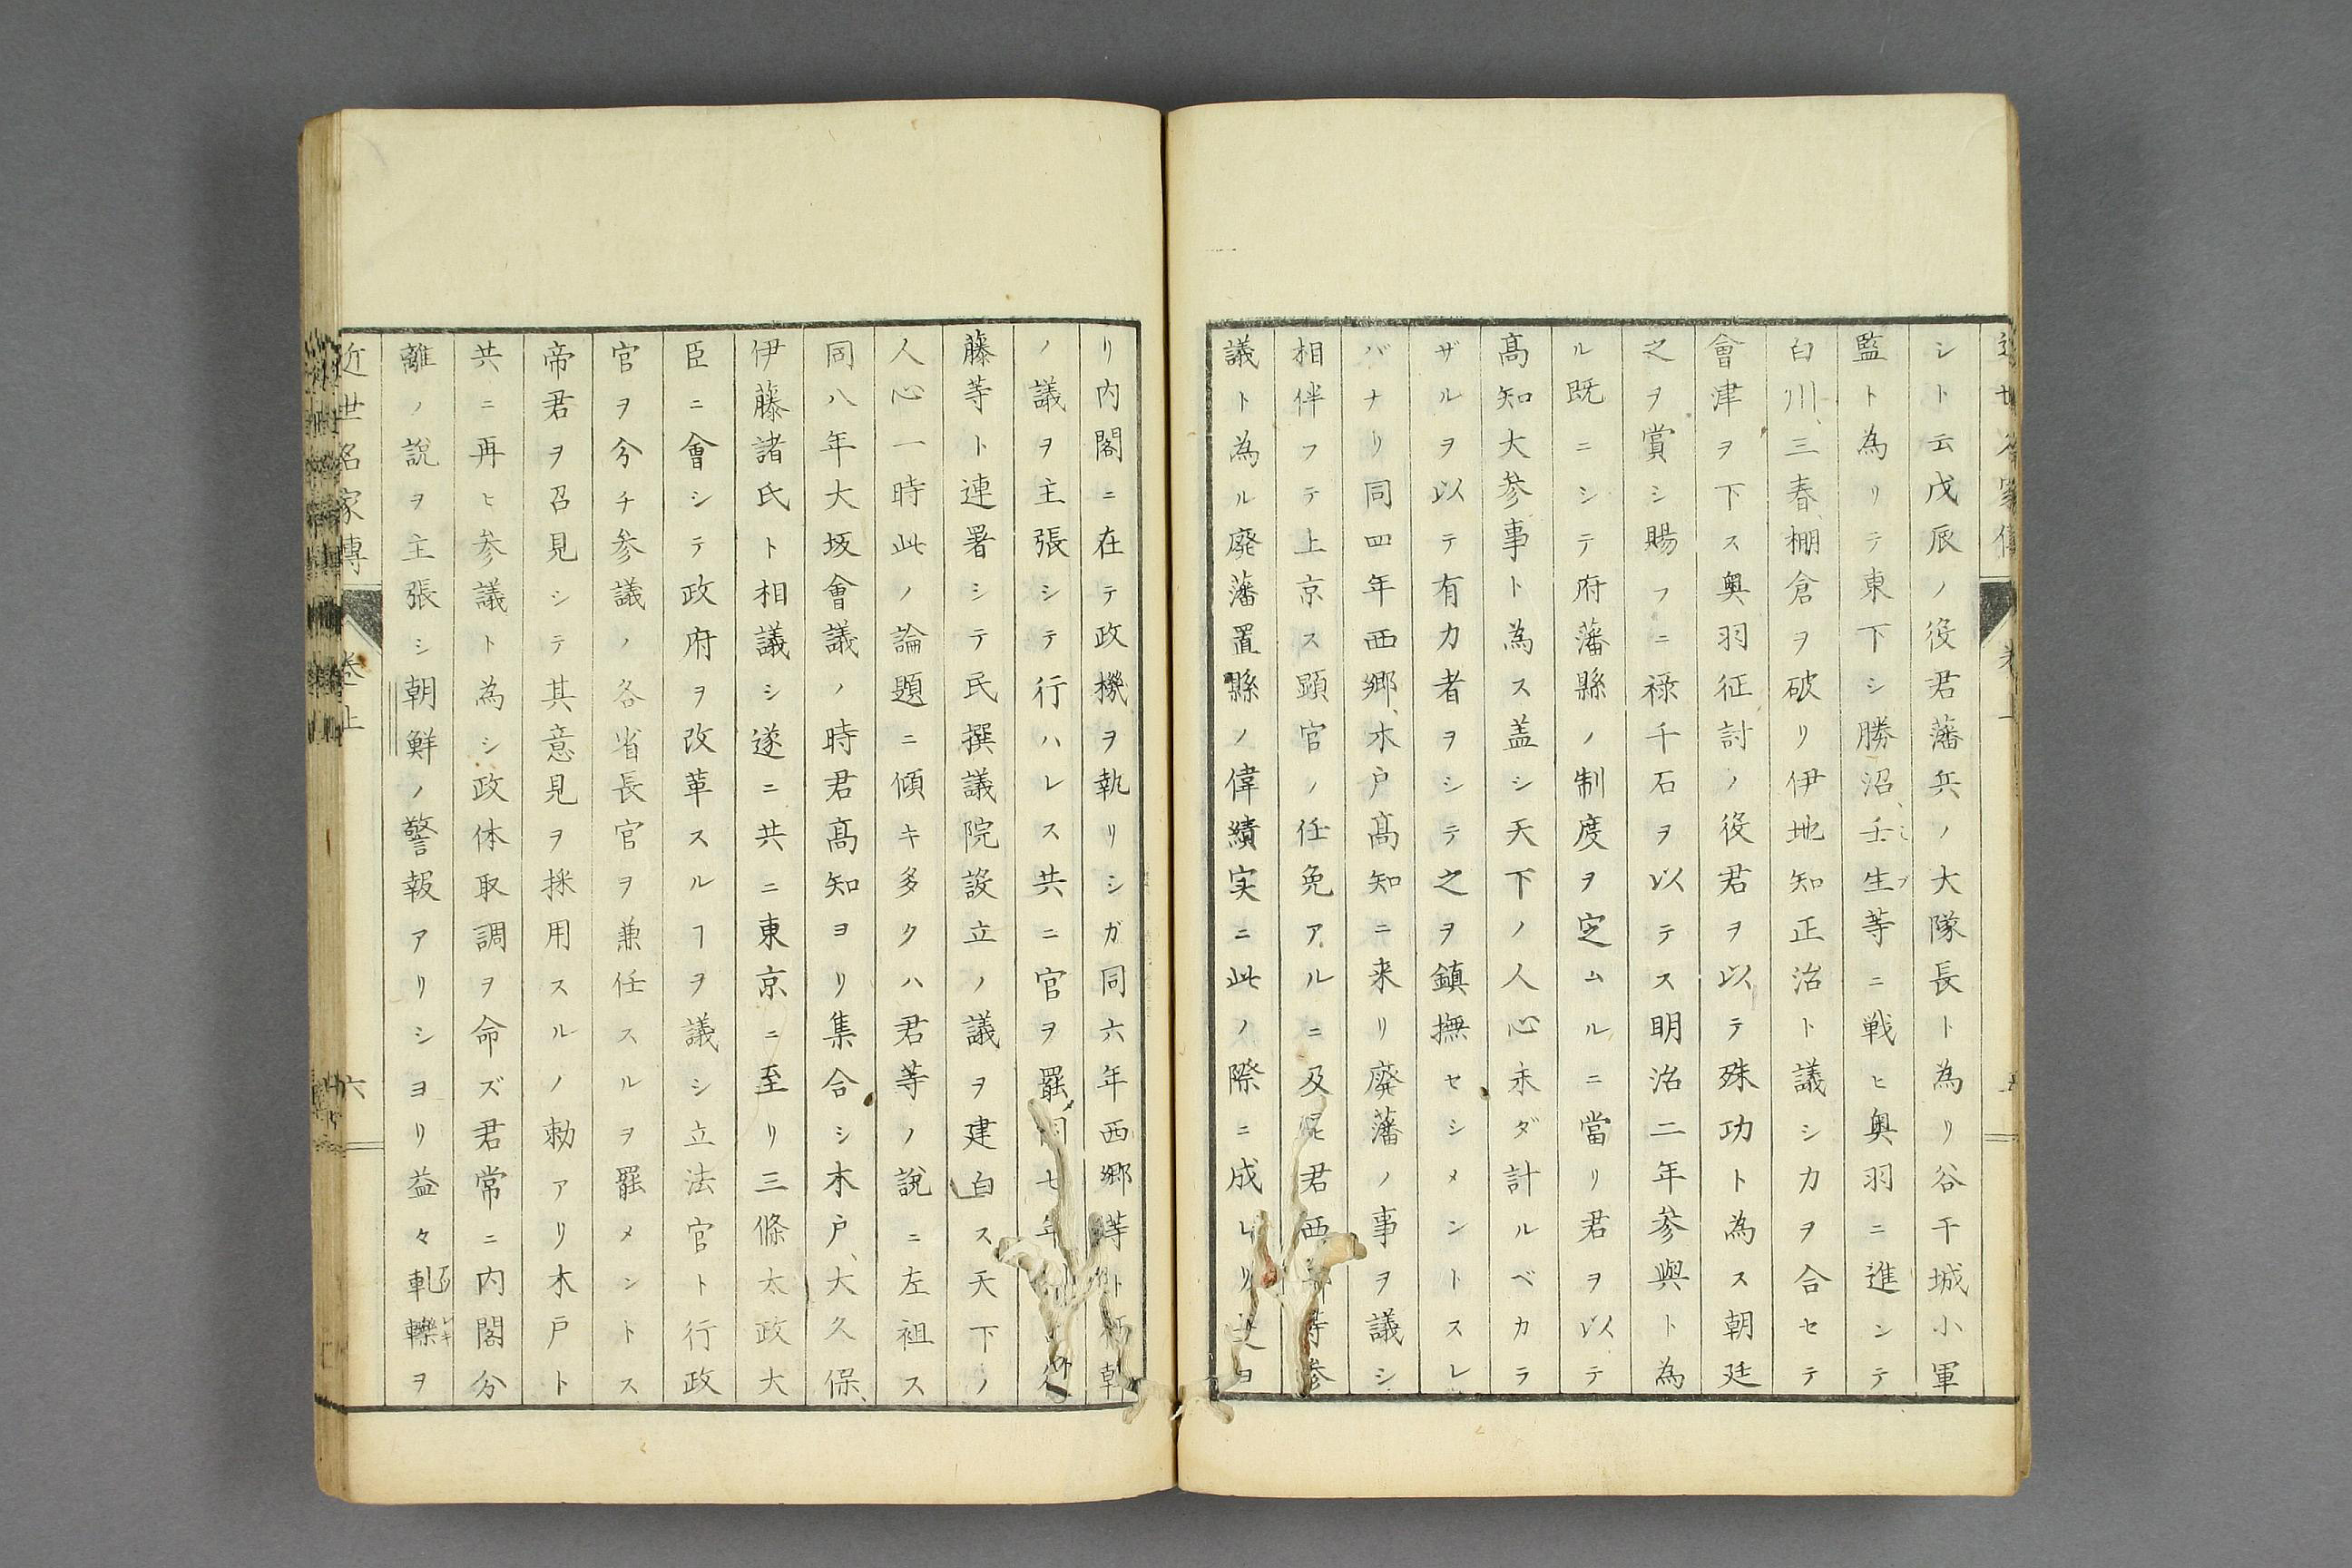 シト云戊辰ノ役君藩兵ノ大隊長ト為リ谷干城小軍
監ト為リテ東下シ勝沼、壬生等ニ戦ヒ奥羽ニ進ンテ
白川、三春、棚倉ヲ破リ伊地知正治ト議シカヲ合セテ
會津ヲ下ス奥羽征討ノ役君ヲ以テ殊功ト為ス朝廷
之ヲ賞シ賜フニ禄千石ヲ以テス明治二年参與ト為
ル既ニシテ府藩縣ノ制度ヲ定ムルニ當リ君ヲ以テ
髙知大参事ト為ス盖シ天下ノ人心未ダ計ルベカラ
ザルヲ以テ有力者ヲシテ之ヲ鎮撫セシメントスレ
バナリ同四年西郷、木戸髙知ニ来リ廃藩ノ事ヲ議シ
相伴フテ上京ス顕官ノ任免アルニ及ビ君西郷等参
議ト為ル廃藩置縣ノ偉績実ニ此ノ際ニ成レリ ヨ
リ内閣ニ在テ政機ヲ執リシガ同六年西郷等ト征韓
ノ議ヲ主張シテ行ハレス共ニ官ヲ罷 同七年
藤等ト連署シテ民撰議院設立ノ議ヲ建白ス天下ノ
人心一時此ノ論題ニ傾キ多クハ君等ノ説ニ左袒ス
同八年大坂會議ノ時君髙知ヨリ集合シ木戸、大久保、
伊藤諸氏ト相議シ遂ニ共ニ東京ニ至リ三條太政大
臣ニ會シテ政府ヲ改革スルヿヲ議シ立法官ト行政
官ヲ分チ参議ノ各省長官ヲ兼任スルヲ罷メントス
帝君ヲ召見シテ其意見ヲ採用スルノ勅アリ木戸ト
共ニ再ヒ参議ト為シ政体取調ヲ命ズ君常ニ内閣分
離ノ説ヲ主張シ朝鮮ノ警報アリシヨリ益々軋轢ヲ
近世名家傳 卷上 六